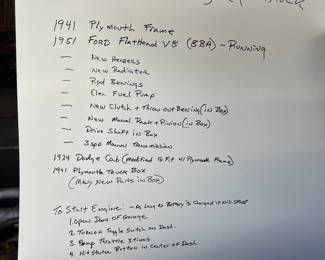 1941 Plymouth Frame
1951 FORD FlatHead V8 (8BA) - Running
— New Headers
— New Radiator
— Rod Bearings
— Elec. Fuel Pump
— New Clutch + Throw out Bearing (in Box)
— New Manual Rack + Pinion (in Box)
— Drive Shaft in Box
— 3 spd Manual Transmission
1934 Dodge Cab (Modified To Fit 41 Plymouth Frame)
1941 Plymouth Truck Box
(Many New Parts in Box)
To Start Engine: - As Long As Battery is Charged it will Start
1. Open Doors of Garage
2. Turn on Toggle Switch on Dash.
3. Pump Throttle 3 times
4. Hit Starter Button in Center of Dash.